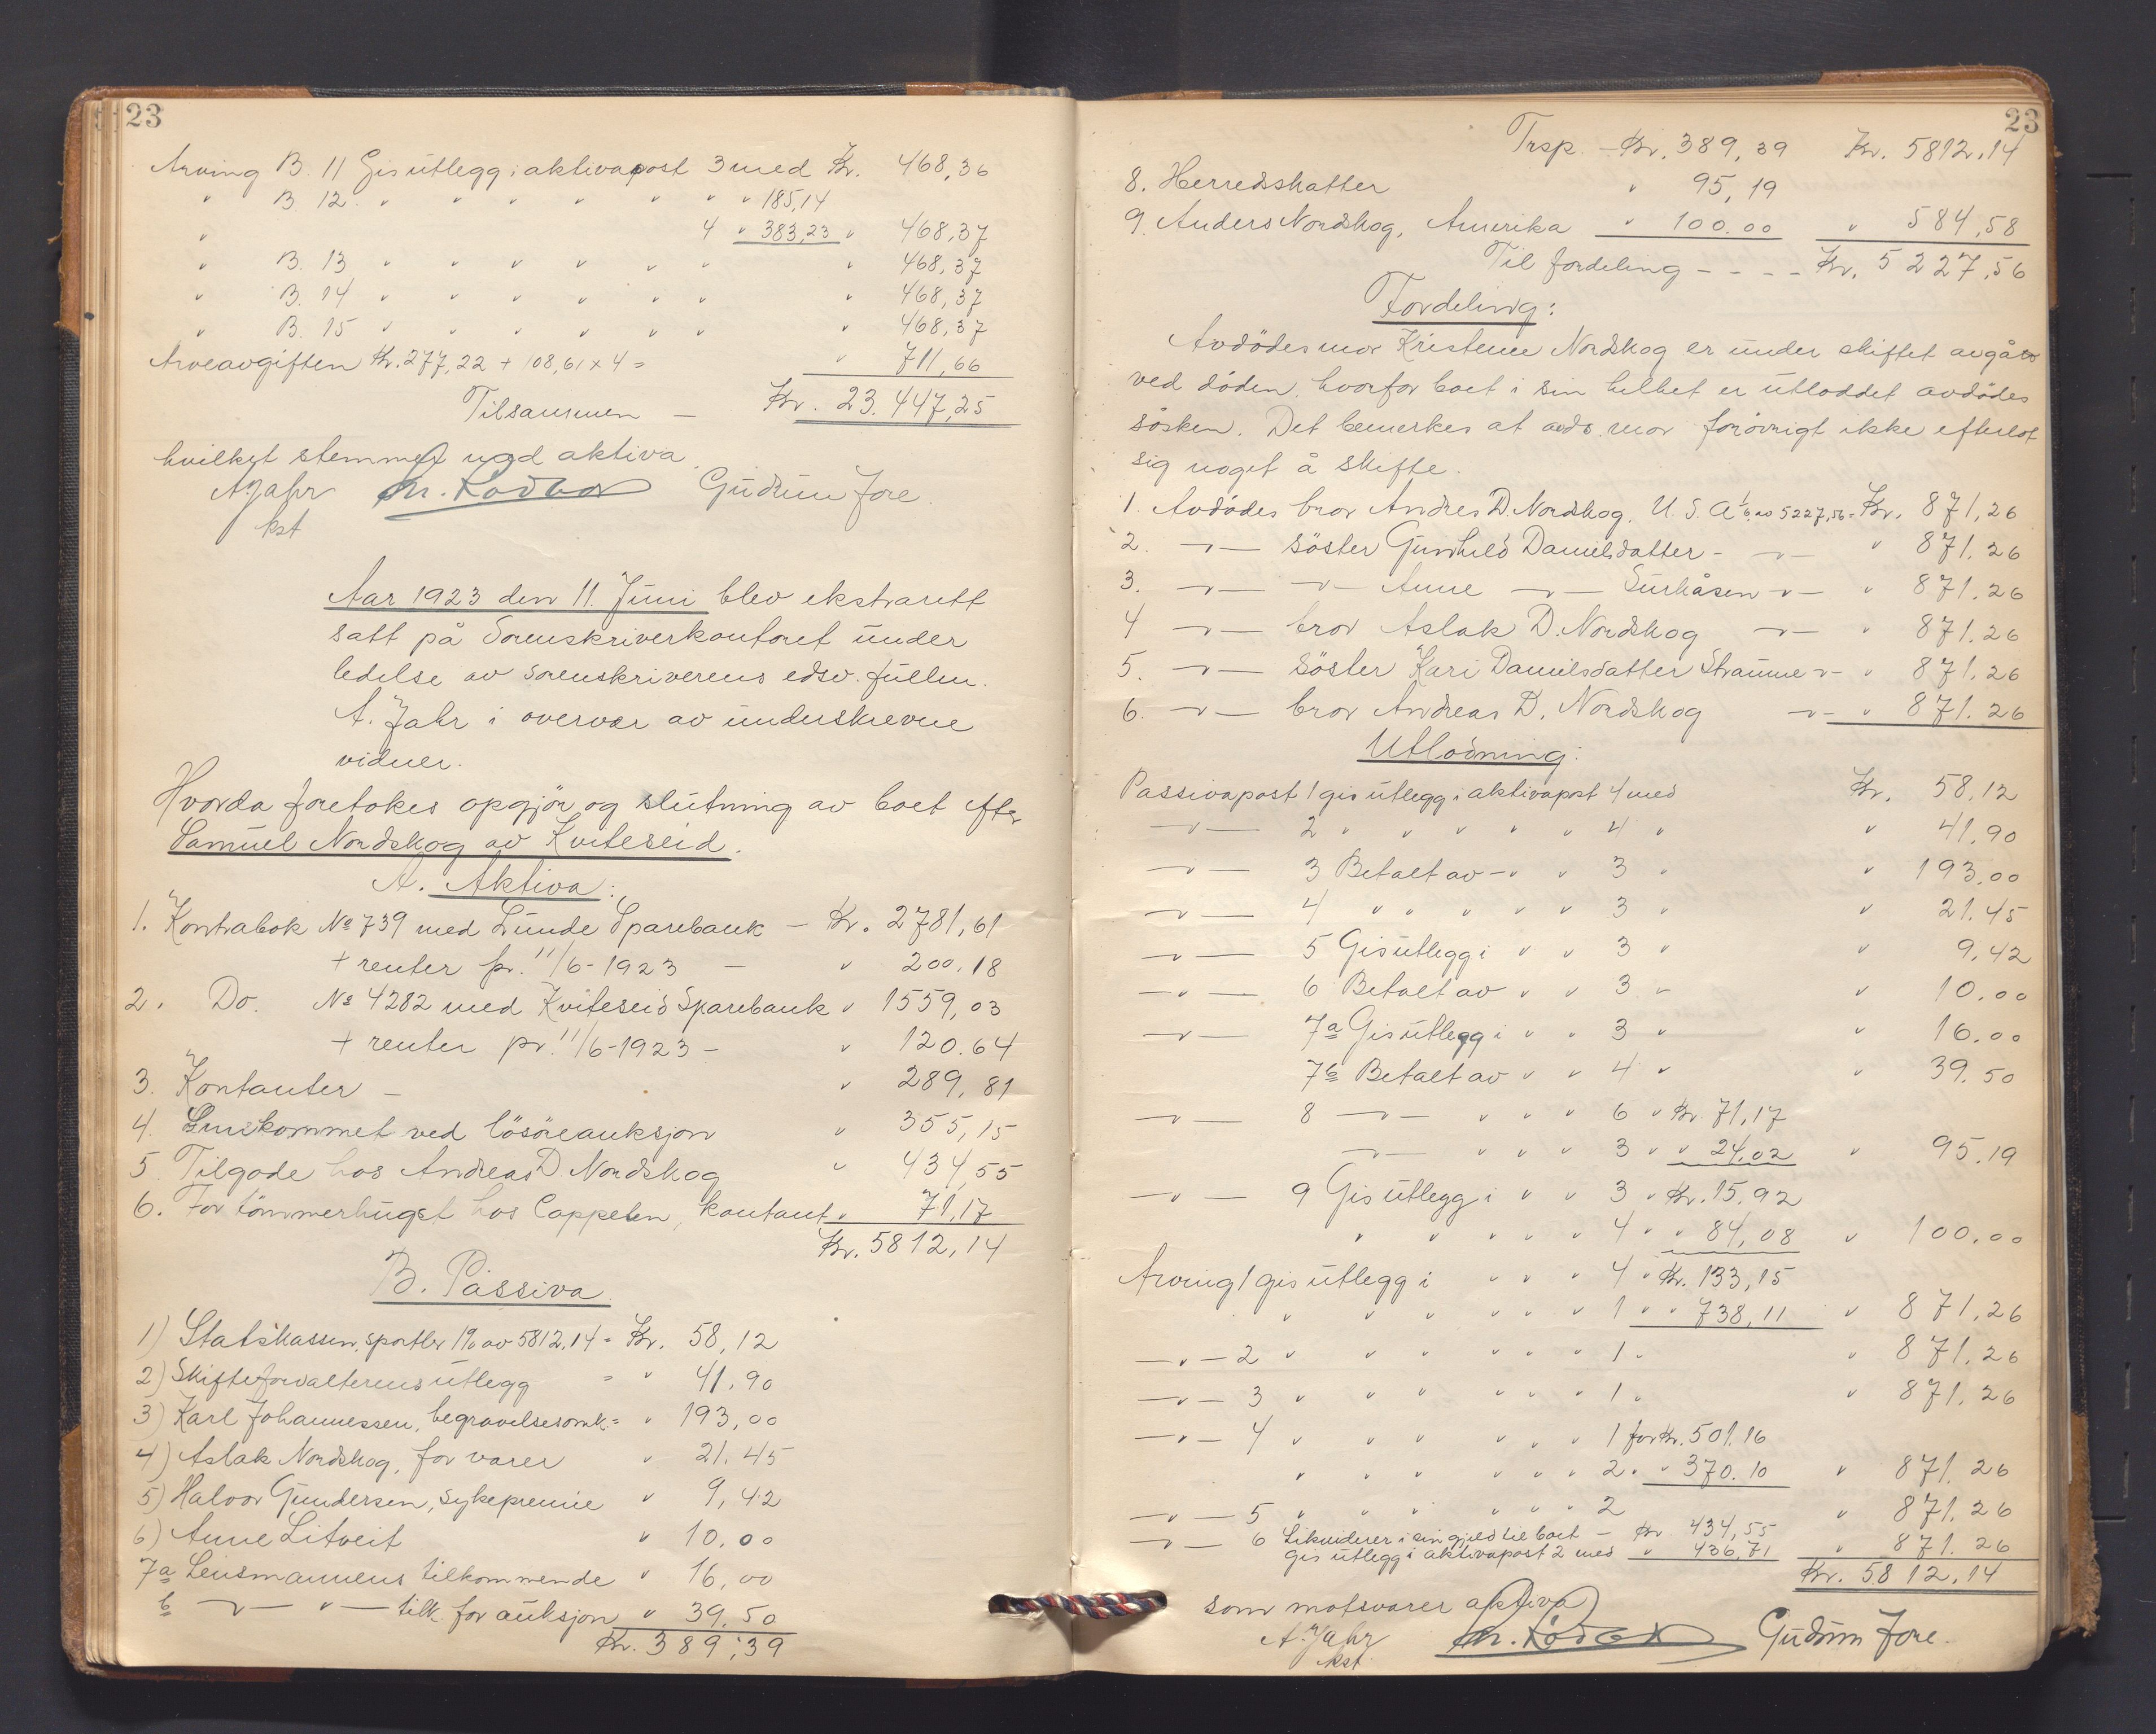 23
Arving B. 11 Gis utlegg i aktivapost 3 med Kr. 468,36
" B. 12 " " " " " " " 185,14
" 4 " 383,23 " 468,37
" B. 13 " " " " " " " 468,37
" B. 14 " " " " " " " 468,37
" B. 15 " " " " " " " 468,37
Arveavgiften Kr. 277,22 + 108,61 x 4 = " 711,66
Tilsammen — Kr. 23.447,25
hvilket stemmer med aktiva.
A. Jahr Gudrun Jore.
kst
Aar 1923 den 11. Juni blev ekstrarett
satt på Sorenskriverkontoret under
ledelse av sorenskriverens edsv. fullm.
A. Jahr i overvær av underskrevne
vidner.
Hvorda foretokes opgjör og slutning av boet efter
Samuel Nordskog av Kviteseid.
A. Aktiva:
1. Kontrabok № 739 med Lunde Sparebank — Kr. 2781,61
+ renter pr. 11/6-1923 — " 200.18
2. Do. № 4282 med Kviteseid Sparebank " 1559,03
+ renter pr. 11/6-1923 — " 120.64
3. Kontanter — " 289,81
4. Innkommet ved lösöreauksjon " 355,15
5. Tilgode hos Andreas D. Nordskog " 434,55
6. For tömmerhugst hos Cappelen, kontant " 71,17
Kr. 5812,14
B. Passiva.
1) Statskassen, sportler 1% av 5812.14 = Kr. 58,12
2) Skifteforvalterens utlegg = " 41.90
3) Karl Johannessen, begravelsesomk. = " 193,00
4) Aslak Nordskog, for varer " 21.45
5) Halvor Gundersen, sykepremie " 9,42
6) Anne Litveit " 10.00
7a Lensmannens tilkommende " 16,00
b —"— " — tilk. for auksjon " 39.50
Kr. 389,39
23
Trsp. — Kr. 389,39 Kr. 5812,14
8. Herredskatter " 95,19
9. Anders Nordskog, Amerika " 100.00 " 584,58
Til fordeling - - - - Kr. 5227,56
Fordeling:
Avdödes mor Kristence Nordskog er under skiftet avgått
ved döden, hvorfor boet i sin helhet er utloddet avdödes
sösken. Det bemerkes at avds. mor forövrigt ikke efterlot
sig noget å skifte.
1. Avdödes bror Andres D. Nordskog, U.S.A. 1/6 av 5227,56 = Kr. 871,26
2. —"— söster Gunhild Danielsdatter - —"— " 871.26
3. —"— —"— Anne —"— Surkåsen —"— " 871.26
4 —"— bror Aslak D. Nordskog —"— " 871.26
5. —"— söster Kari Danielsdatter Straume —"— " 871.26
6. —"— bror Andreas D. Nordskog —"— " 871.26
Utlodning:
Passivapost 1 gis utlegg i aktivapost 4 med Kr. 58,12
—"— 2 " " " " " 4 " " 41.90
—"— 3 Betalt av —" " 3 " " 193.00
—"— 4 " " " " " 3 " " 21.45
—"— 5 Gis utlegg i " " 3 " " 9,42
—"— 6 Betalt av " " 3 " " 10.00
—"— 7a Gis utlegg i " " 3 " " 16.00
7b Betalt av " " 4 " " 39.50
—"— 8 —"— " " " 6 " Kr. 71,17
—"— " " " 3 " " 24.02 " 95.19
—"— 9 Gis utlegg i " " 3 " Kr. 15.92
" " " " " 4 " " 84,08 " 100.00
Arving 1 gis utlegg i " " " 4 " Kr. 133,15
" " " " " " " 1 " " 738,11 " 871,26
—"— 2 " " " " " " 1 " " 871.26
—"— 3 " " " " " " 1 " " 871.26
—"— 4 " " " " " " 1 for Kr. 501.16
" " " " " " 2 " " 370.10 " 871.26
—"— 5 " " " " " " 2 " 871.26
—"— 6 Likviderer i sin gjeld til boet — Kr. 434,55
gis utlegg i aktivapost 2 med " 436,71 " 871.26
Kr. 5812,14
som motsvarer aktiva
A. Jahr Gudrun Jore.
kst.